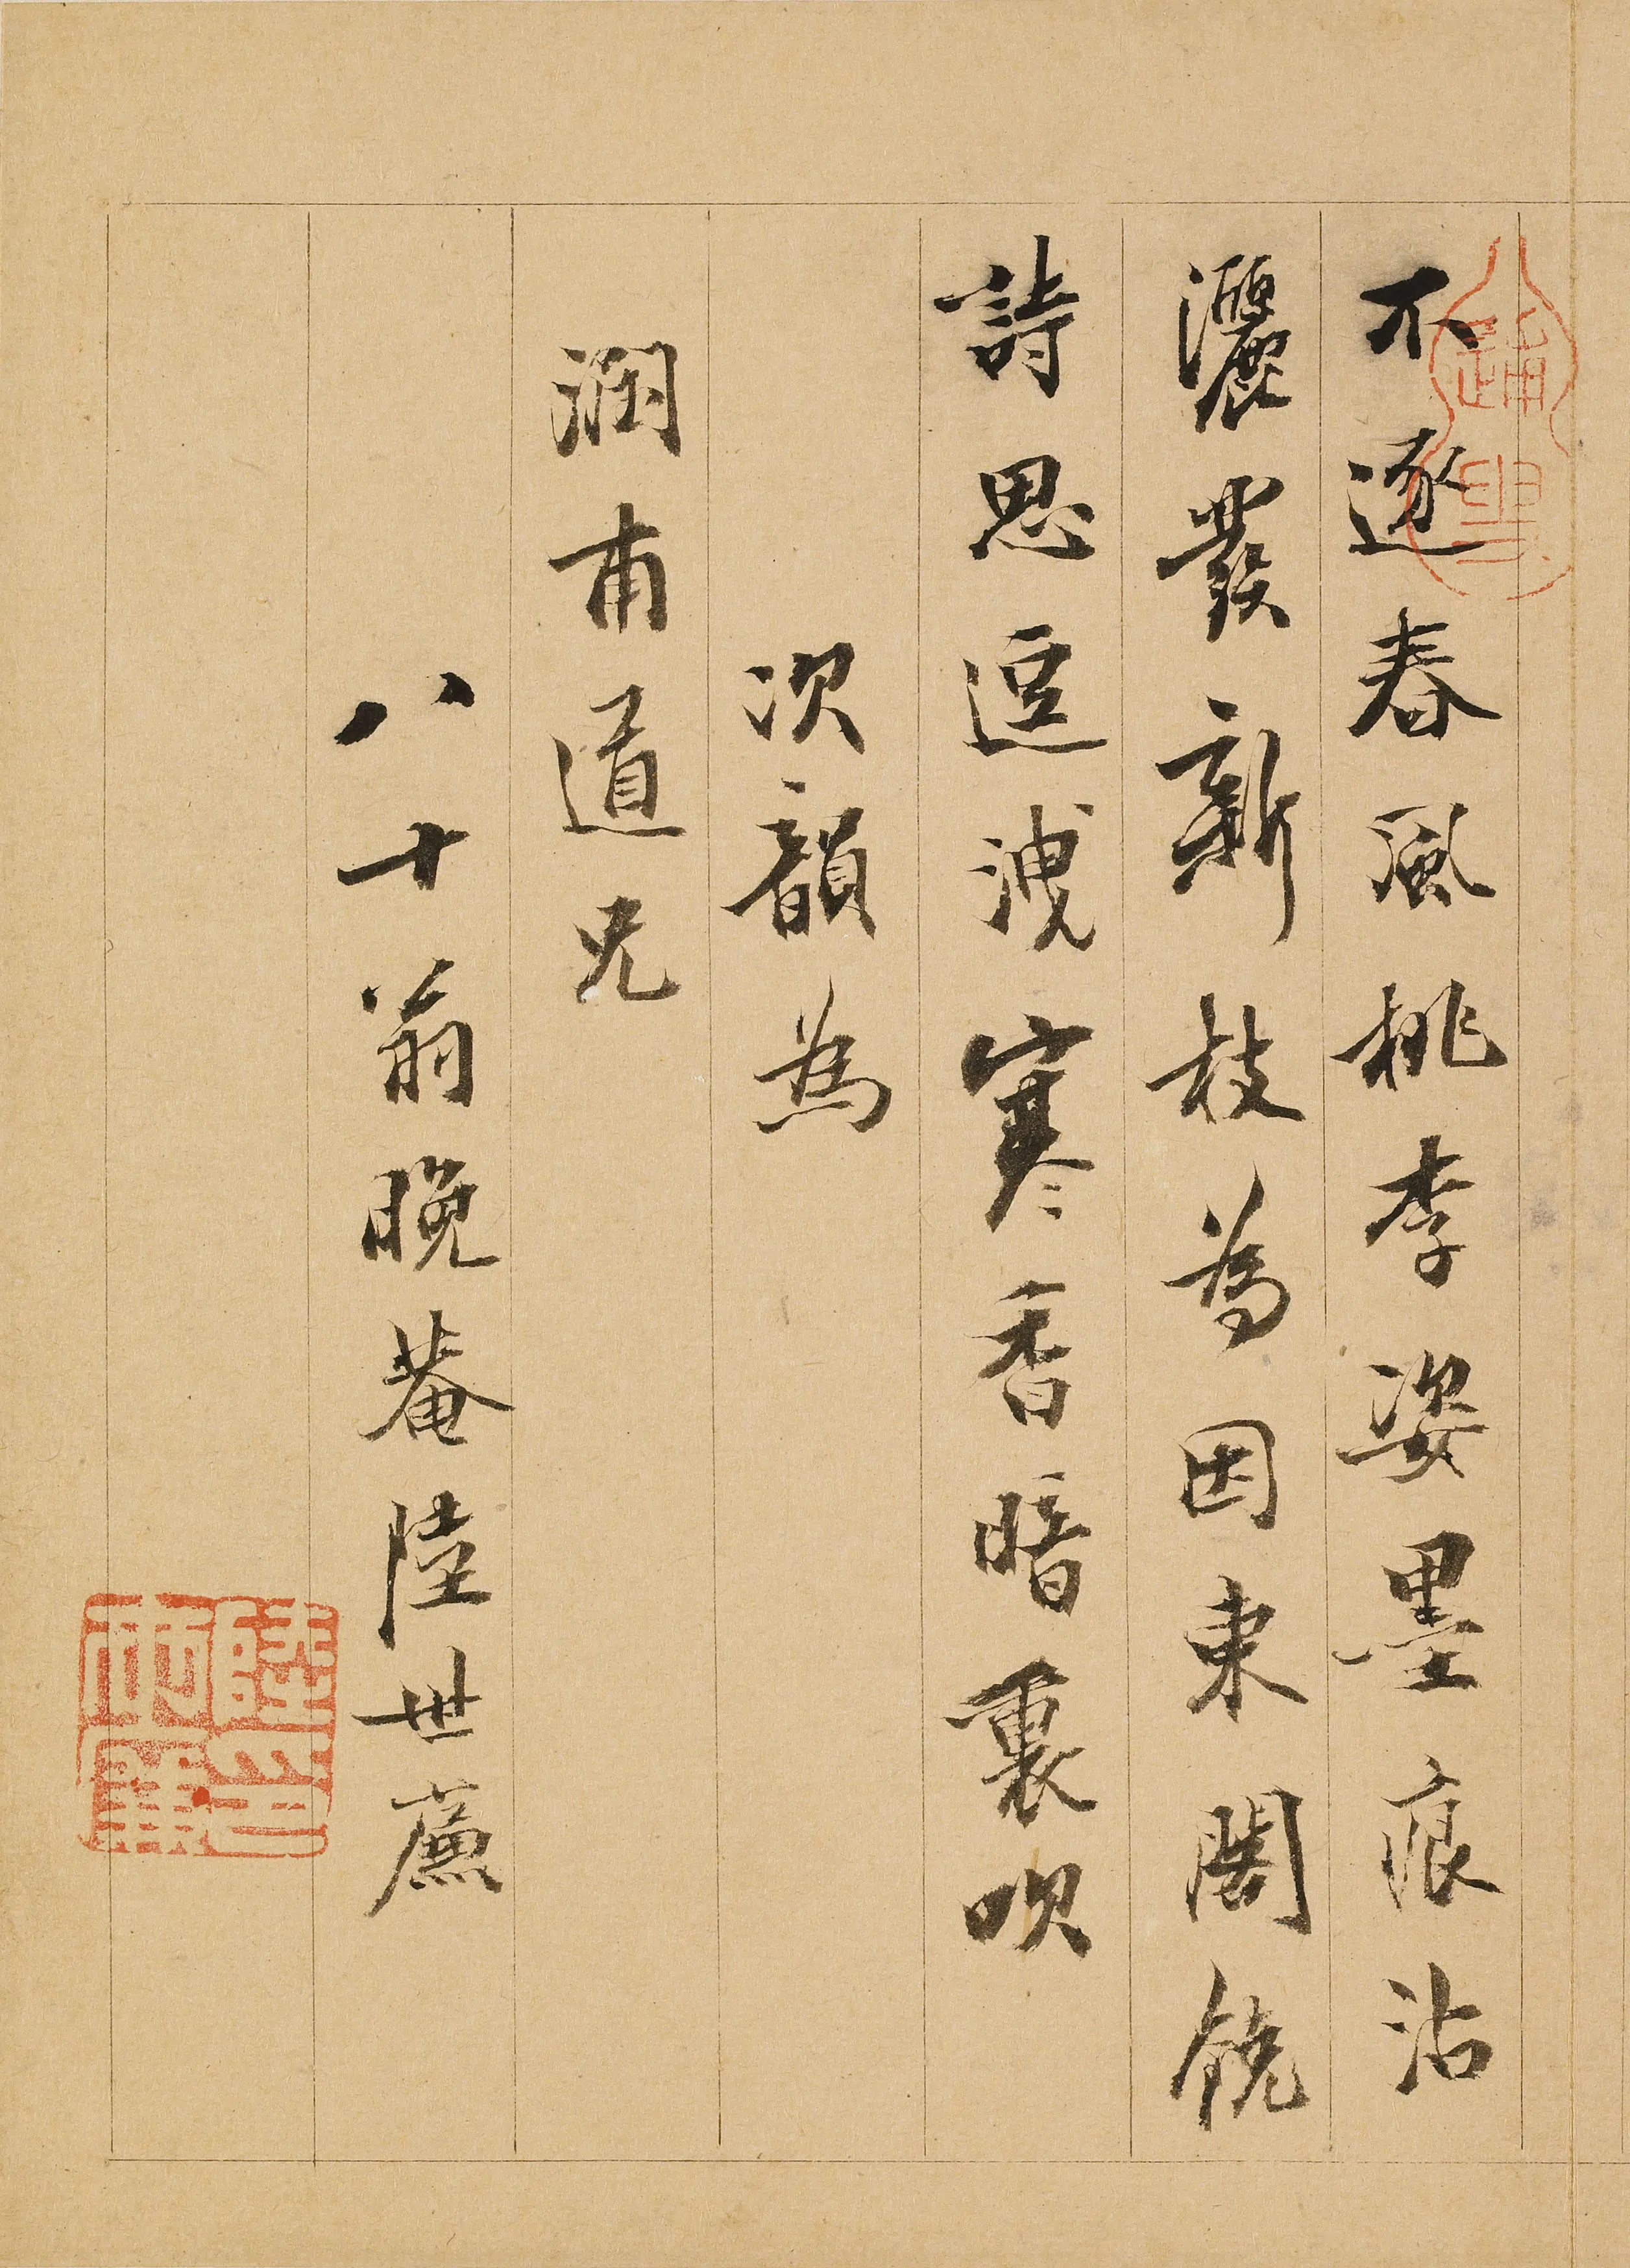 不逐春風桃李姿墨痕沾
灑發新枝為因東閣饒
詩思逗洩寒香暗裏吹
次韻為
潤甫道兄
八十翁晚菴陸世廉